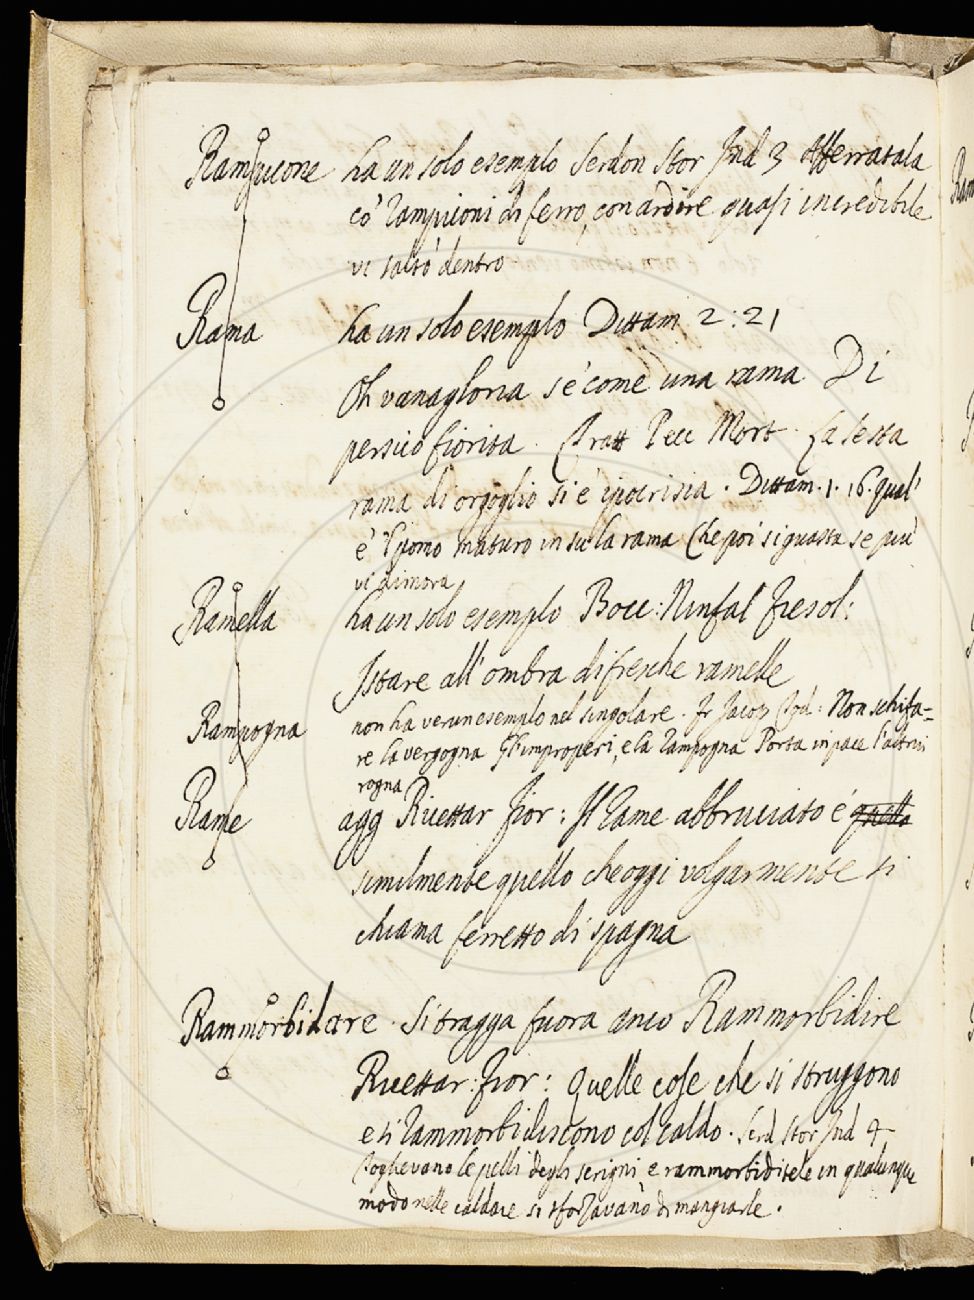 Rampicone ha un solo esempio Serdon Stor Ind 3 Afferratala
co' rampiconi di ferro, con ardire quasi incredibile
vi saltò dentro
Rama ha un solo esempio Dittam 2:21
Oh vanagloria s è come una rama Di
persico fiorita. Tratt Pecc Mort. La sesta
rama di orgoglio si è ipocrisia. Dittam. 1. 16. Qual'
è 'l pomo maturo in su la rama Che poi si guasta se più
vi dimora
Ramella ha un solo esempio Bocc: Ninfal Fiesol:
Istare all'ombra di fresche ramelle
Rampogna non ha verun esempio nel singolare. Fr Jacop: Non schifa=
re la vergogna Gl'improperi, e la rampogna Porta in pace
rogna
Rame agg Ricettar Fior: Il rame abbruciato é quello
similmente quello che oggi volgarmente si
chiama ferretto di spagna
Rammorbidare. Si tragga fuora anco Rammorbidire
Ricettar: Fior: Quelle cose che si struggono
e si rammorbidiscono col caldo. Serd Stor Ind 4
Toglievano le pelli degli scrigni e rammorbiditele in qualunque
modo nelle caldaie si sforzavano di mangiarle.